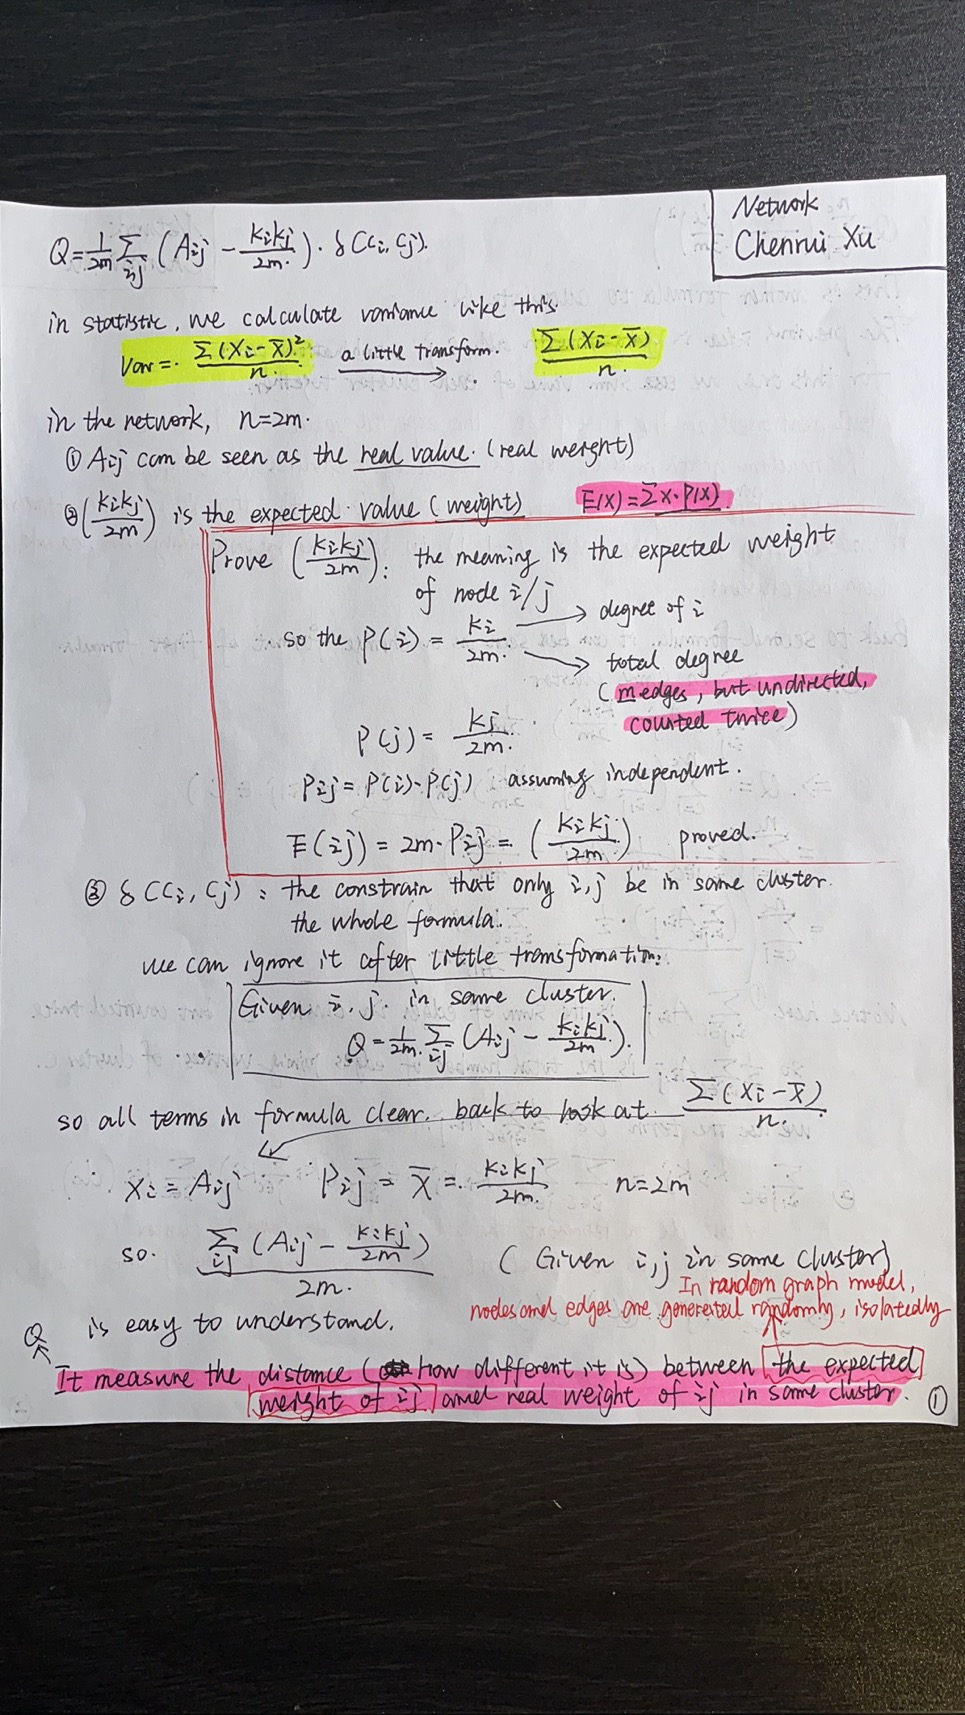 Network
Chenrui Xu
Q = 1/2m Σij (Aij - kikj/2m) · δ(Ci, Cj).
in statistic, we calculate variance like this.
Var = Σ(Xi - X̄)²/n a little transform. → Σ(Xi - X̄)/n
in the network, n=2m.
① Aij can be seen as the real value. (real weight)
② (kikj/2m) is the expected value (weight) E(X)=Σx·P(x).
Prove (kikj/2m): the meaning is the expected weight
of node i/j
so the P(i) = ki/2m. → degree of i
→ total degree
(m edges, but undirected,
counted twice)
P(j) = kj/2m.
Pij = P(i)·P(j) assuming independent.
E(ij) = 2m·Pij = (kikj/2m) proved.
③ δ(Ci, Cj): the constrain that only i,j be in same cluster.
the whole formula.
we can ignore it after little transformation:
Given i, j in same cluster.
Q = 1/2m Σij (Aij - kikj/2m).
so all terms in formula clear. back to look at Σ(Xi - X̄)/n.
Xi = Aij Pij = X̄ = kikj/2m. n=2m
so. Σij (Aij - kikj/2m)/2m. (Given i,j in same cluster)
In random graph model,
nodes and edges are generated randomly, isolatedly
Q is easy to understand.
It measure the distance (how different it is) between the expected
weight of ij and real weight of ij in same cluster.
①